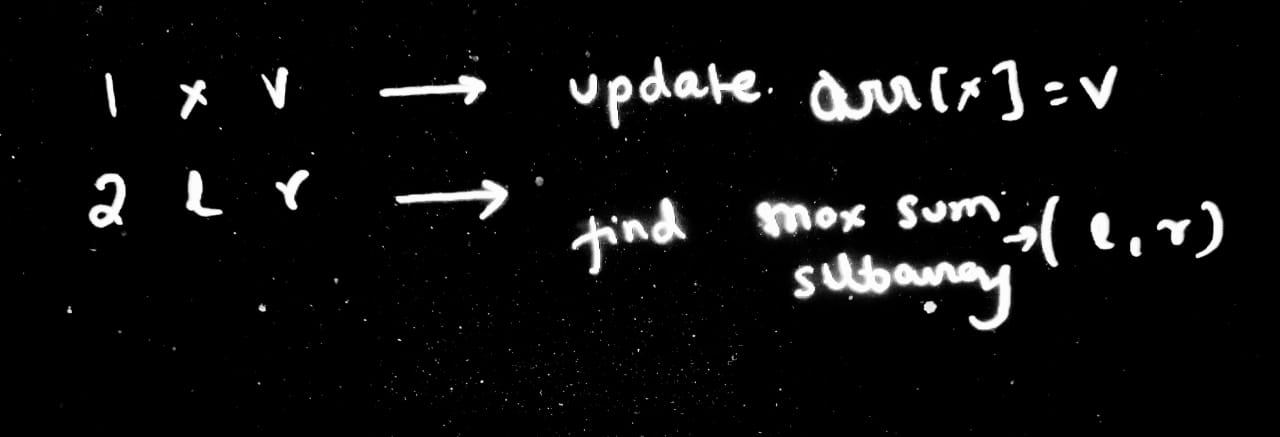 1 x v → update. arr[x] = v
2 l r → find max sum
subarray → (l, r)